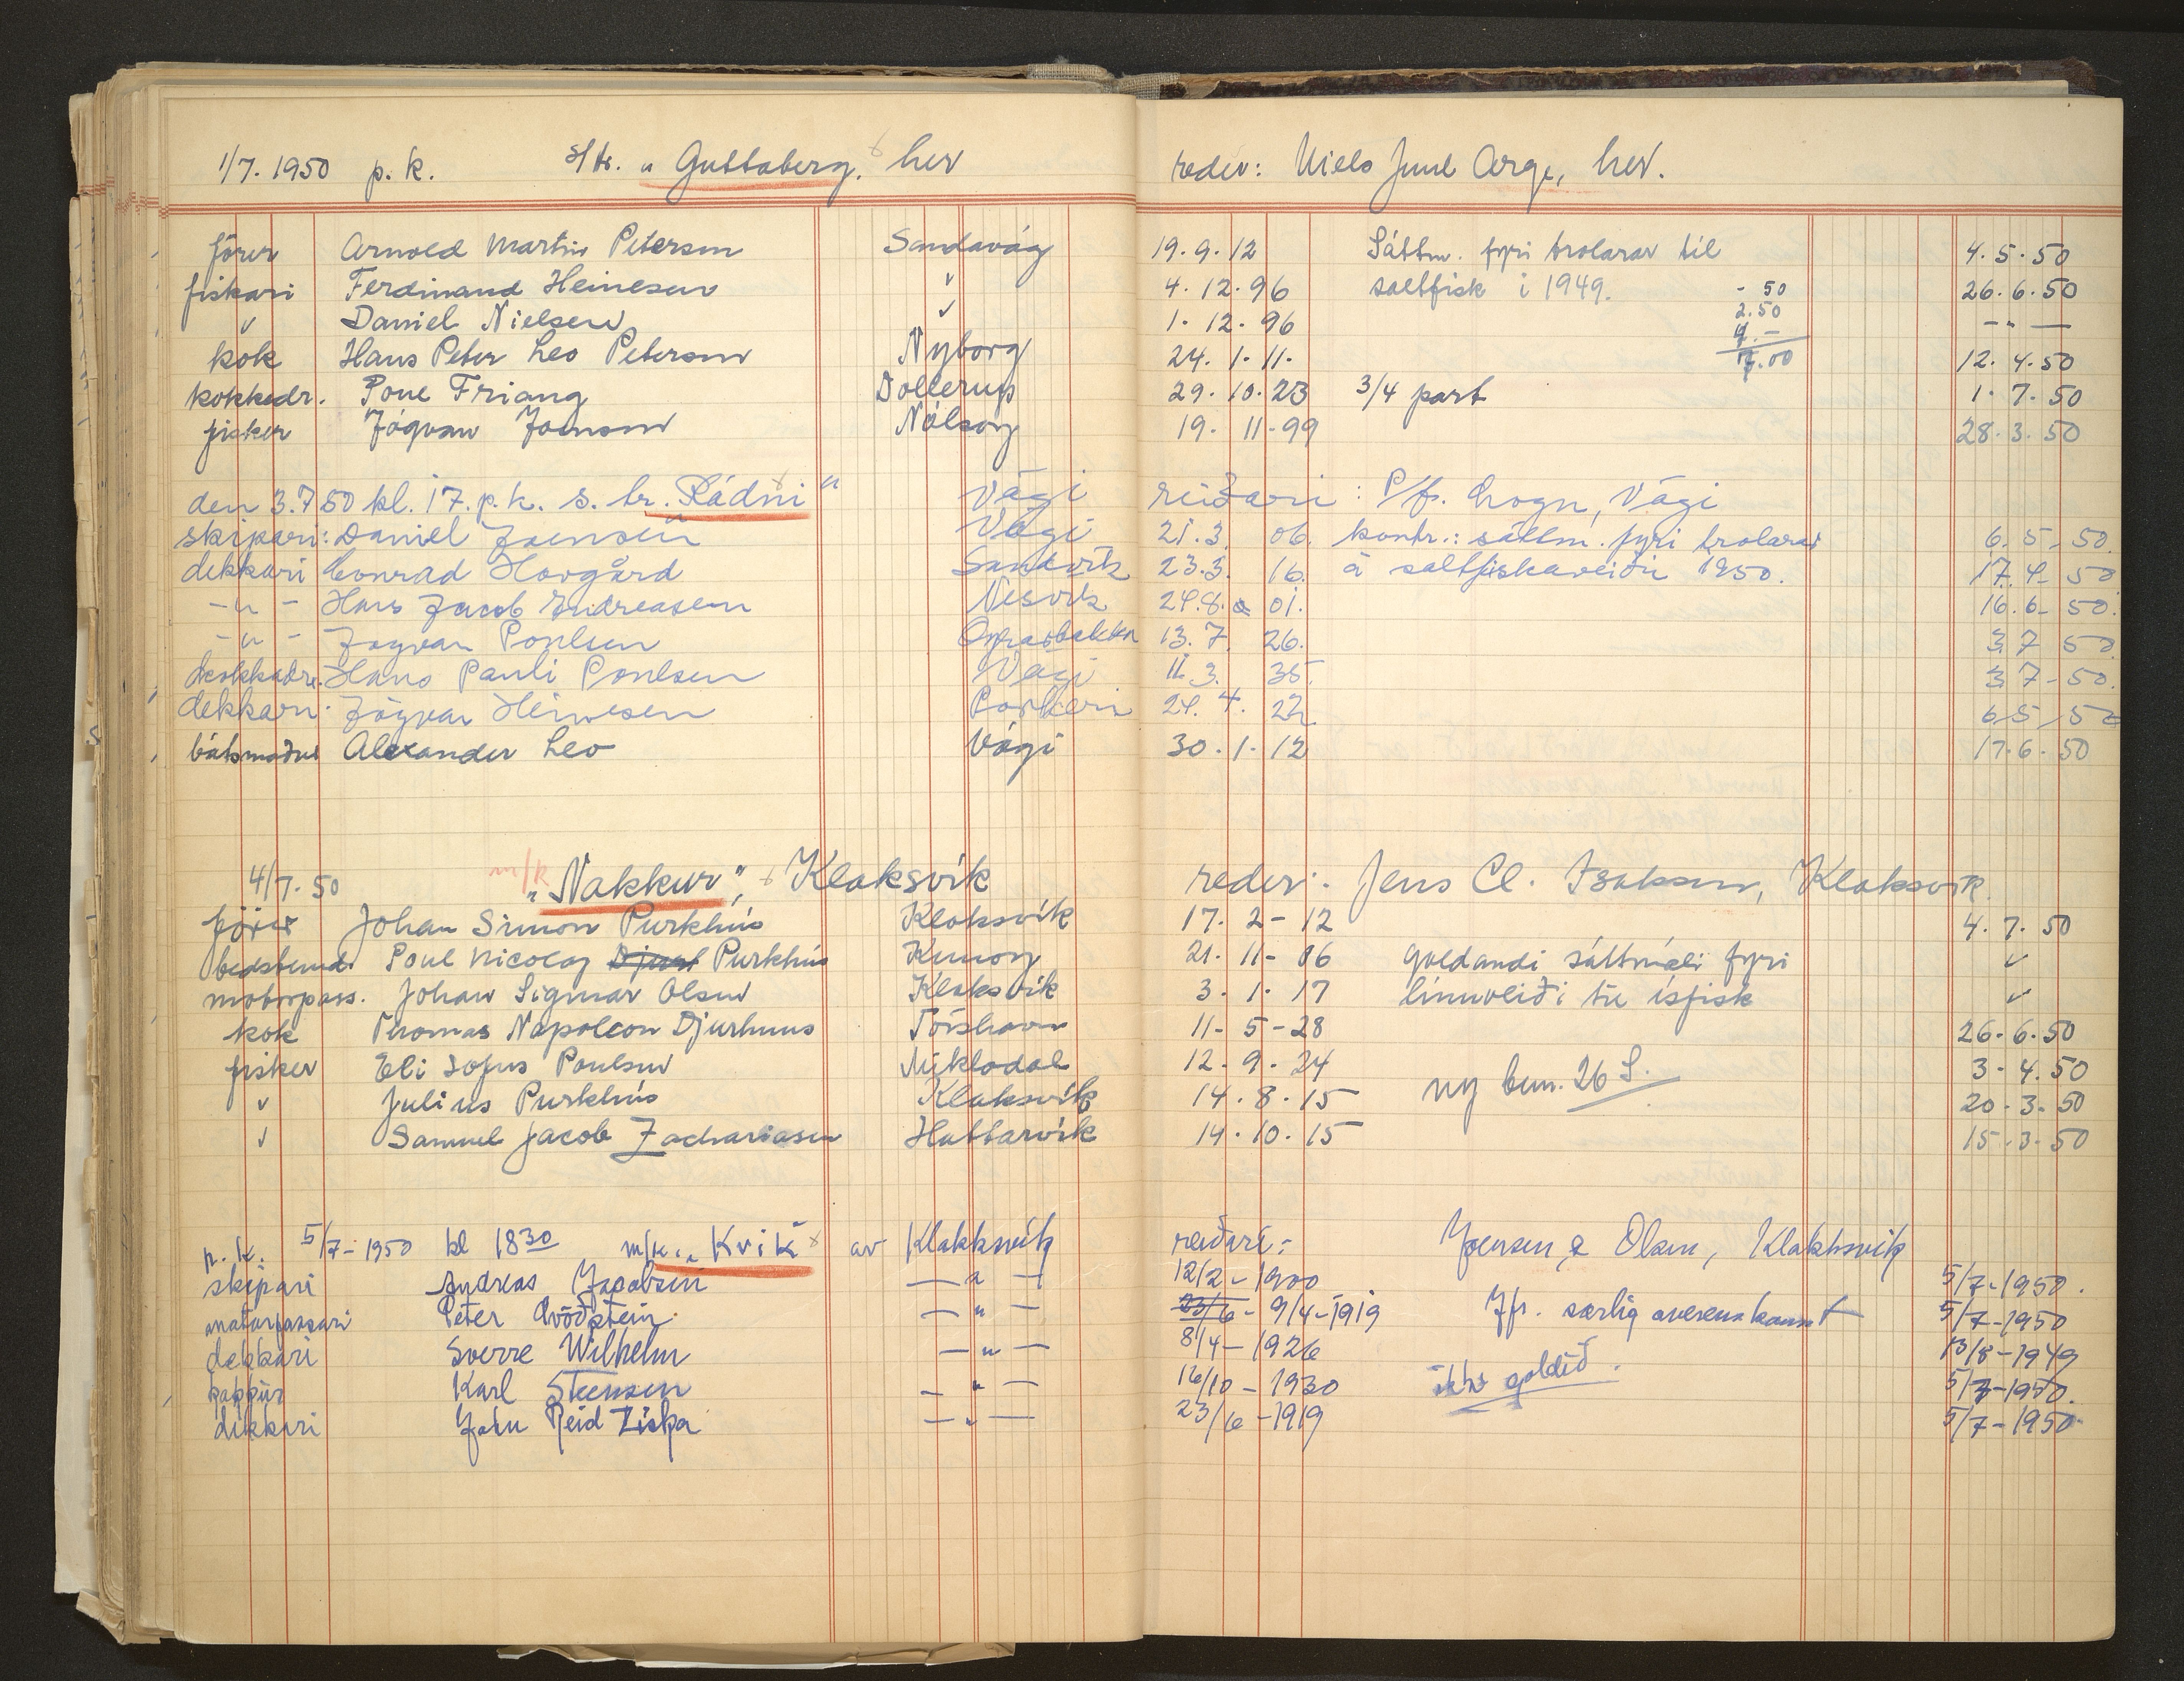 1/7. 1950 p. k. s/tr. „Guttaberg. her reder: Niels Juul Arge, her.
förer Arnold Martin Petersen Sandavág 19.9.12 Sáttm. fyri trolarar til 4.5.50
fiskari Ferdinand Heinesen ✓ 4.12.96 saltfisk i 1949. - 50 26.6.50
✓ Daniel Nielsen ✓ 1.12.96 2.50 -"-
kok Hans Peter Leo Petersen Nyborg 24.1.11. 7.00 12.4.50
kokkedr. Poul Friang Dollerup 29.10.23 3/4 part 1.7.50
fisker Jógvan Joensen Nólsoy 19.11-99 28.3.50
den 3.7 50 kl. 17. p. k. s. tr. „Rádni" Vági reiðari: P/f. Logn, Vági
skipari: Daniel Joensen Vági 21.3. 06. kontr.: sáttm. fyri trolarar 6.5-50.
dekkari Conrad Hovgård Sandvík 23.3. 16. á saltfiskaveiðu 1950. 17.4-50
-"- Hans Jacob Andreasen Nesvík 24.8. 01. 16.6-50.
-"- Jógvan Poulsen 13.7. 26. 3 7 50
kokkadr. Hans Pauli Poulsen Vági 11.3. 35. 3 7-50.
dekkari. Jógvan Heinesen Porkeri 24.4. 22. 6 5 50
bátsmaður Alexander Leo Vági 30.1.12 17.6.50
4/7. 50 m/k „Nakkur", Klaksvík reder:. Jens Cl. Isaksen, Klaksvík.
förer Johan Simon Purkhús Klaksvík 17.2-12 4.7.50
bedstemd. Poul Nicolaj Purkhús Kunoy 21.11-06 galdandi sáttmáli fyri ✓
motorpass. Johan Sigmar Olsen Klaksvik 3.1.17 línuveiði til ísfisk ✓
kok Thomas Napoleon Djurhuus Tórshavn 11-5-28 26.6.50
fisker Eli Sofus Poulsen Mikladal 12.9.24 3-4.50
✓ Julius Purkhús Klaksvík 14.8.15 ny bem. 26 S. 20-3-50
✓ Samuel Jacob Zachariasen Hattarvík 14.10.15 15-3-50
p. k. 5/7-1950 kl 1830 m/k. „Kvik" av Klakksvík reiðari:- Joensen & Olsen, Klakksvík
skipari Andreas Jacobsen -"- 12/2-1900 5/7-1950.
motorpassari Peter -"- 23/6- 9/4-1919 Jfr. særlig overenskomst 5/7-1950
dekkari Sverre Wilhelm -"- 8/4-1926 13/8-1949
kokkur Karl Steensen -"- 16/10-1930 ikki goldið. 5/7-1950.
dekkari John Reid Ziska -"- 23/6-1919 5/7-1950